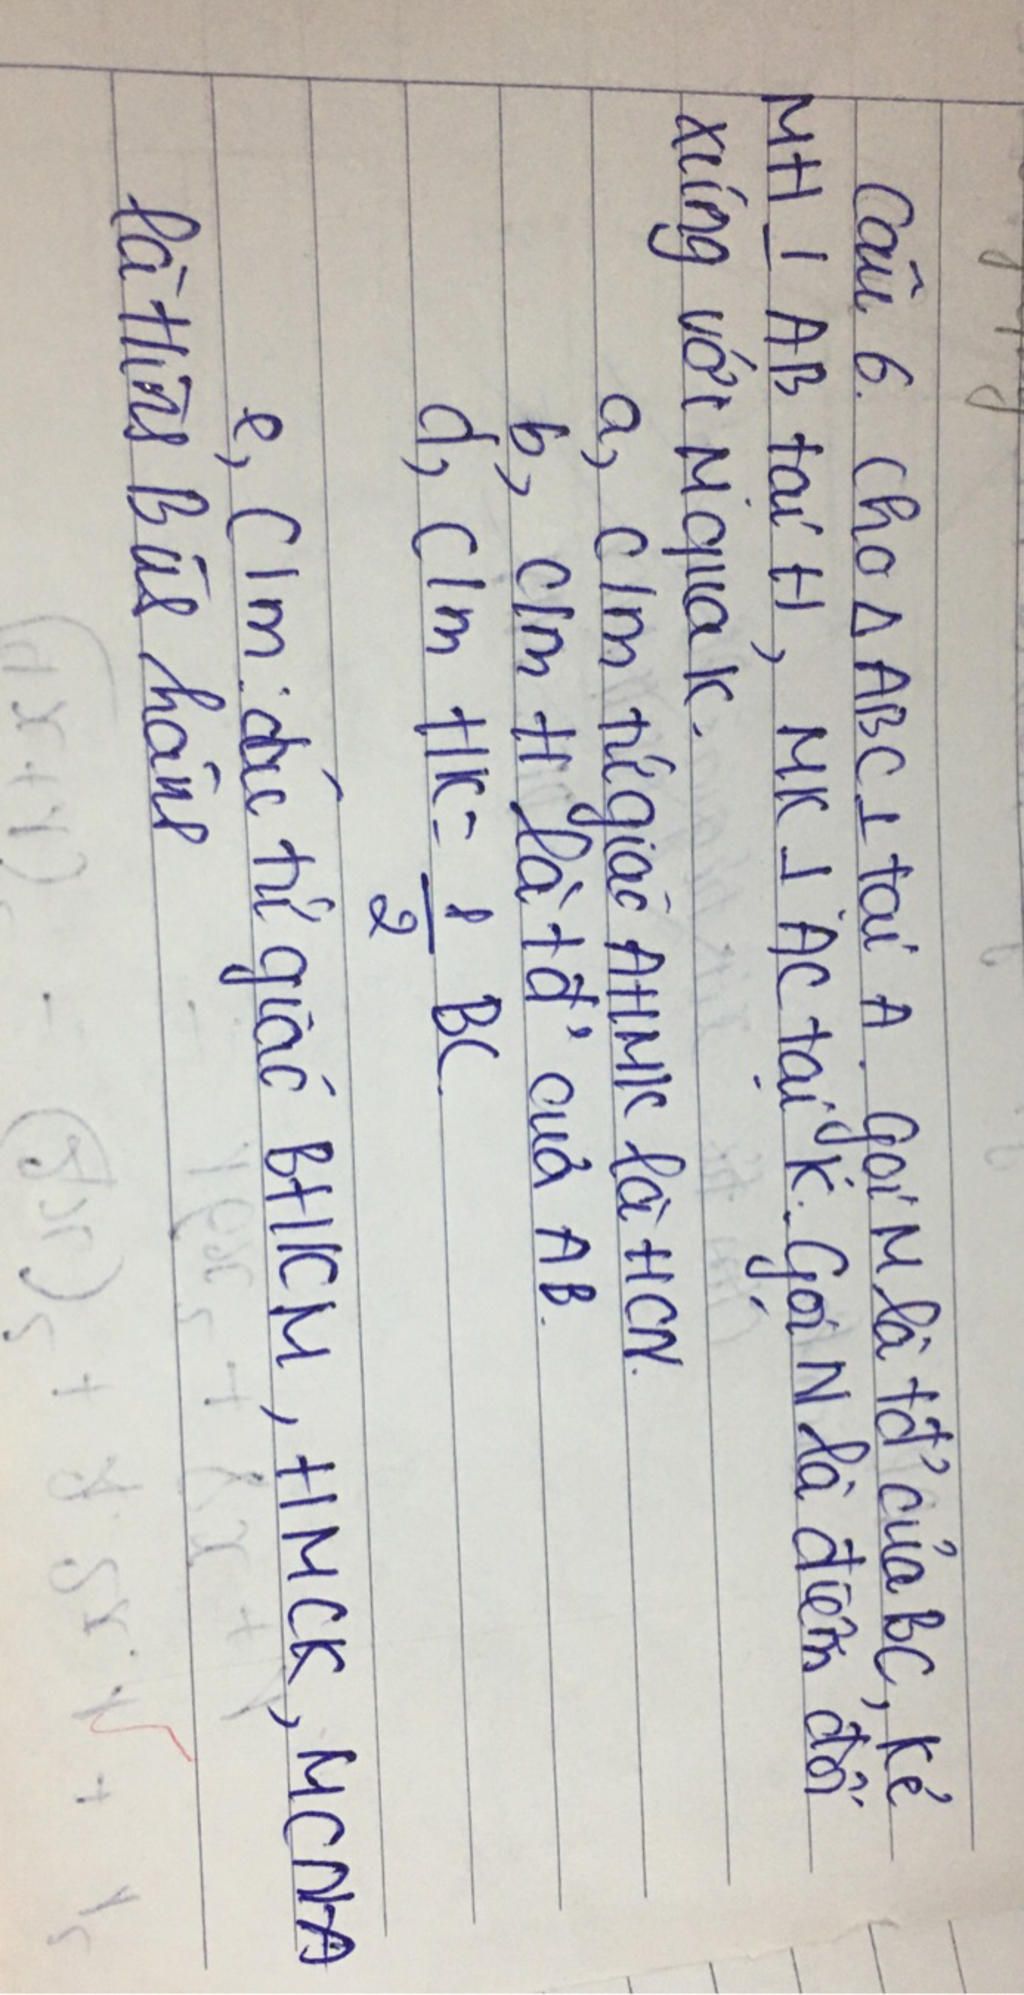 Câu 6. Cho Δ ABC ⊥ tại A. Gọi M là tđ' của BC, kẻ
MH ⊥ AB tại H, MK ⊥ AC tại K. Gọi N là điểm đối
xứng với M qua K.
a, c/m tứ giác AHMK là HCN.
b, c/m H là tđ' của AB.
d, c/m HK = 1/2 BC.
e, c/m: các tứ giác BHKM, HMCK, MCNA
là Hình Bình hành